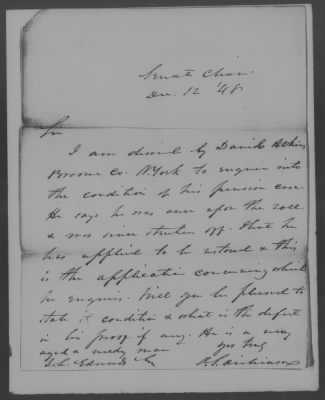 Senate Cham.
Dec. 12 '48
Sir
I am desired by David Atkins
Broome Co. N York to enquire into
the condition of his pension case.
He says he was once upon the roll
& was since stricken off. That he
has applied to be restored & this
is the application concerning which
he enquires. Will you be pleased to
state its condition & what is the defect
in his proof if any. He is a very
aged & needy man
J. L. Edwards Esq
D. S. Dickinson